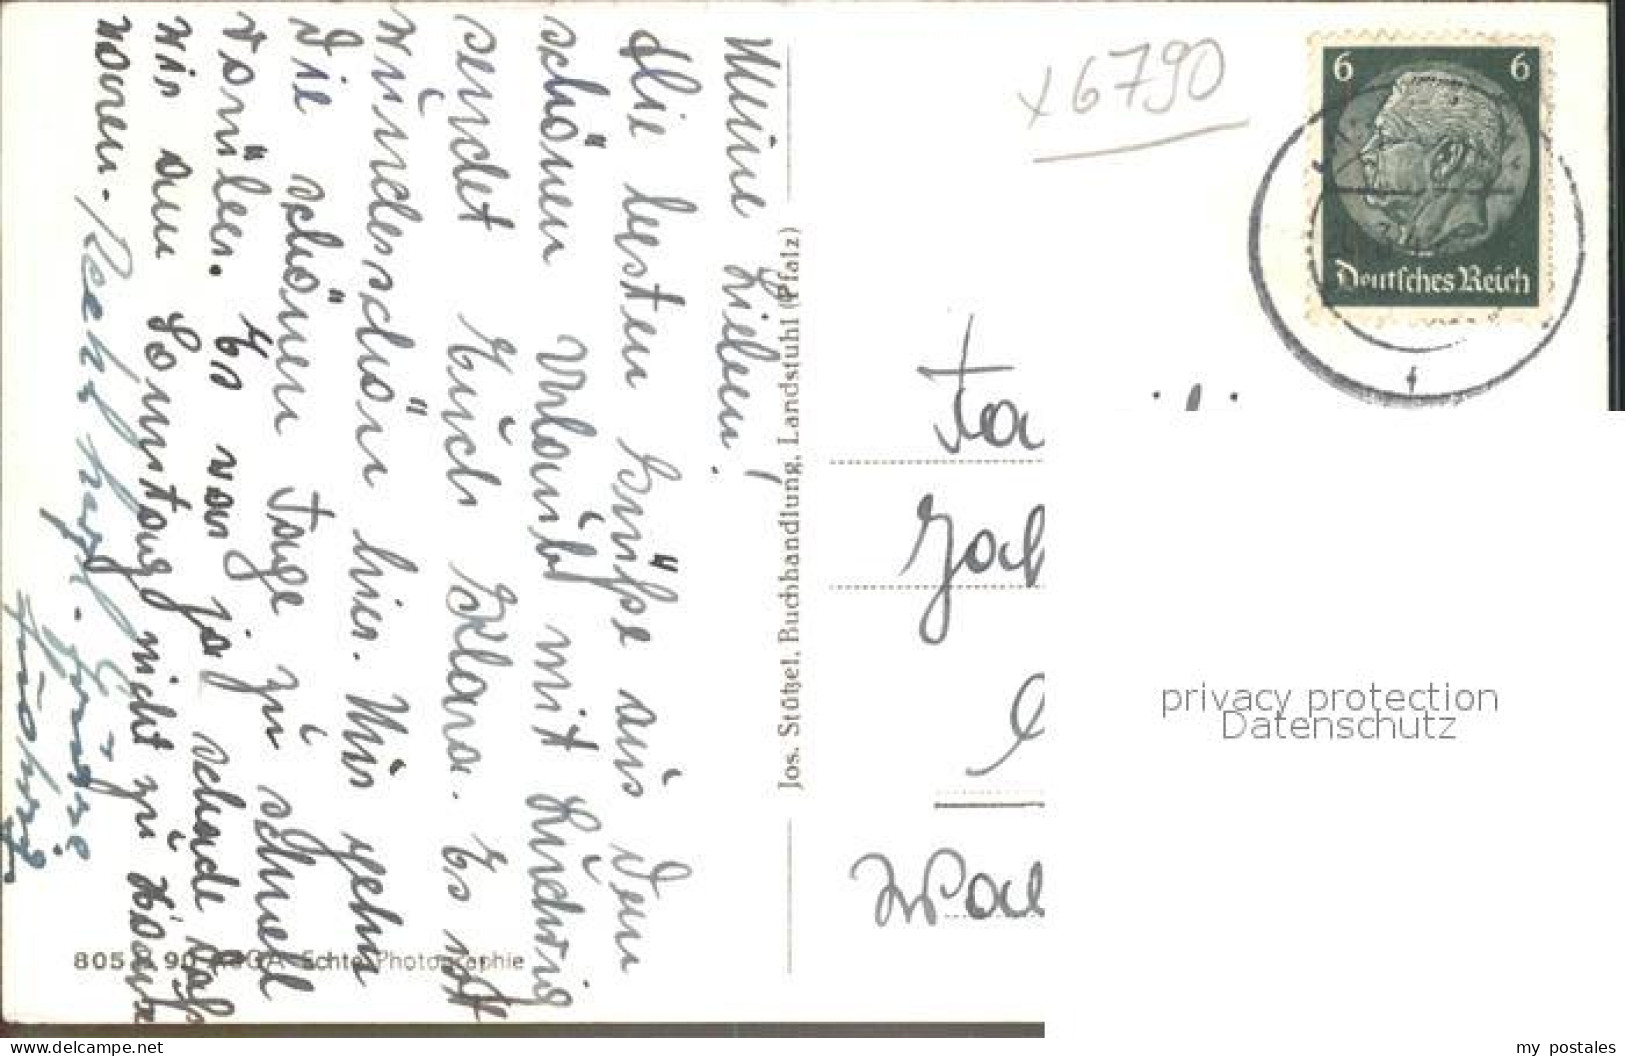 Meine Lieben!
Die besten Grüße aus dem
schönen Urlaub mit Ludwig
sendet Euch Klara. Es ist
wunderschön hier. Wir gehn
die schönen Tage zu schnell
vorüber. Es war ja schade daß
wir am Sonntag nicht zu Hause
waren. Recht herzl. Grüße
Ludwig
Jos. Stützel, Buchhandlung, Landstuhl (Pfalz)
805 90 AGFA Echte Photographie
x 6790
6 6
Deutsches Reich
Fa
privacy protection
Datenschutz
www.delcampe.net
my_postales